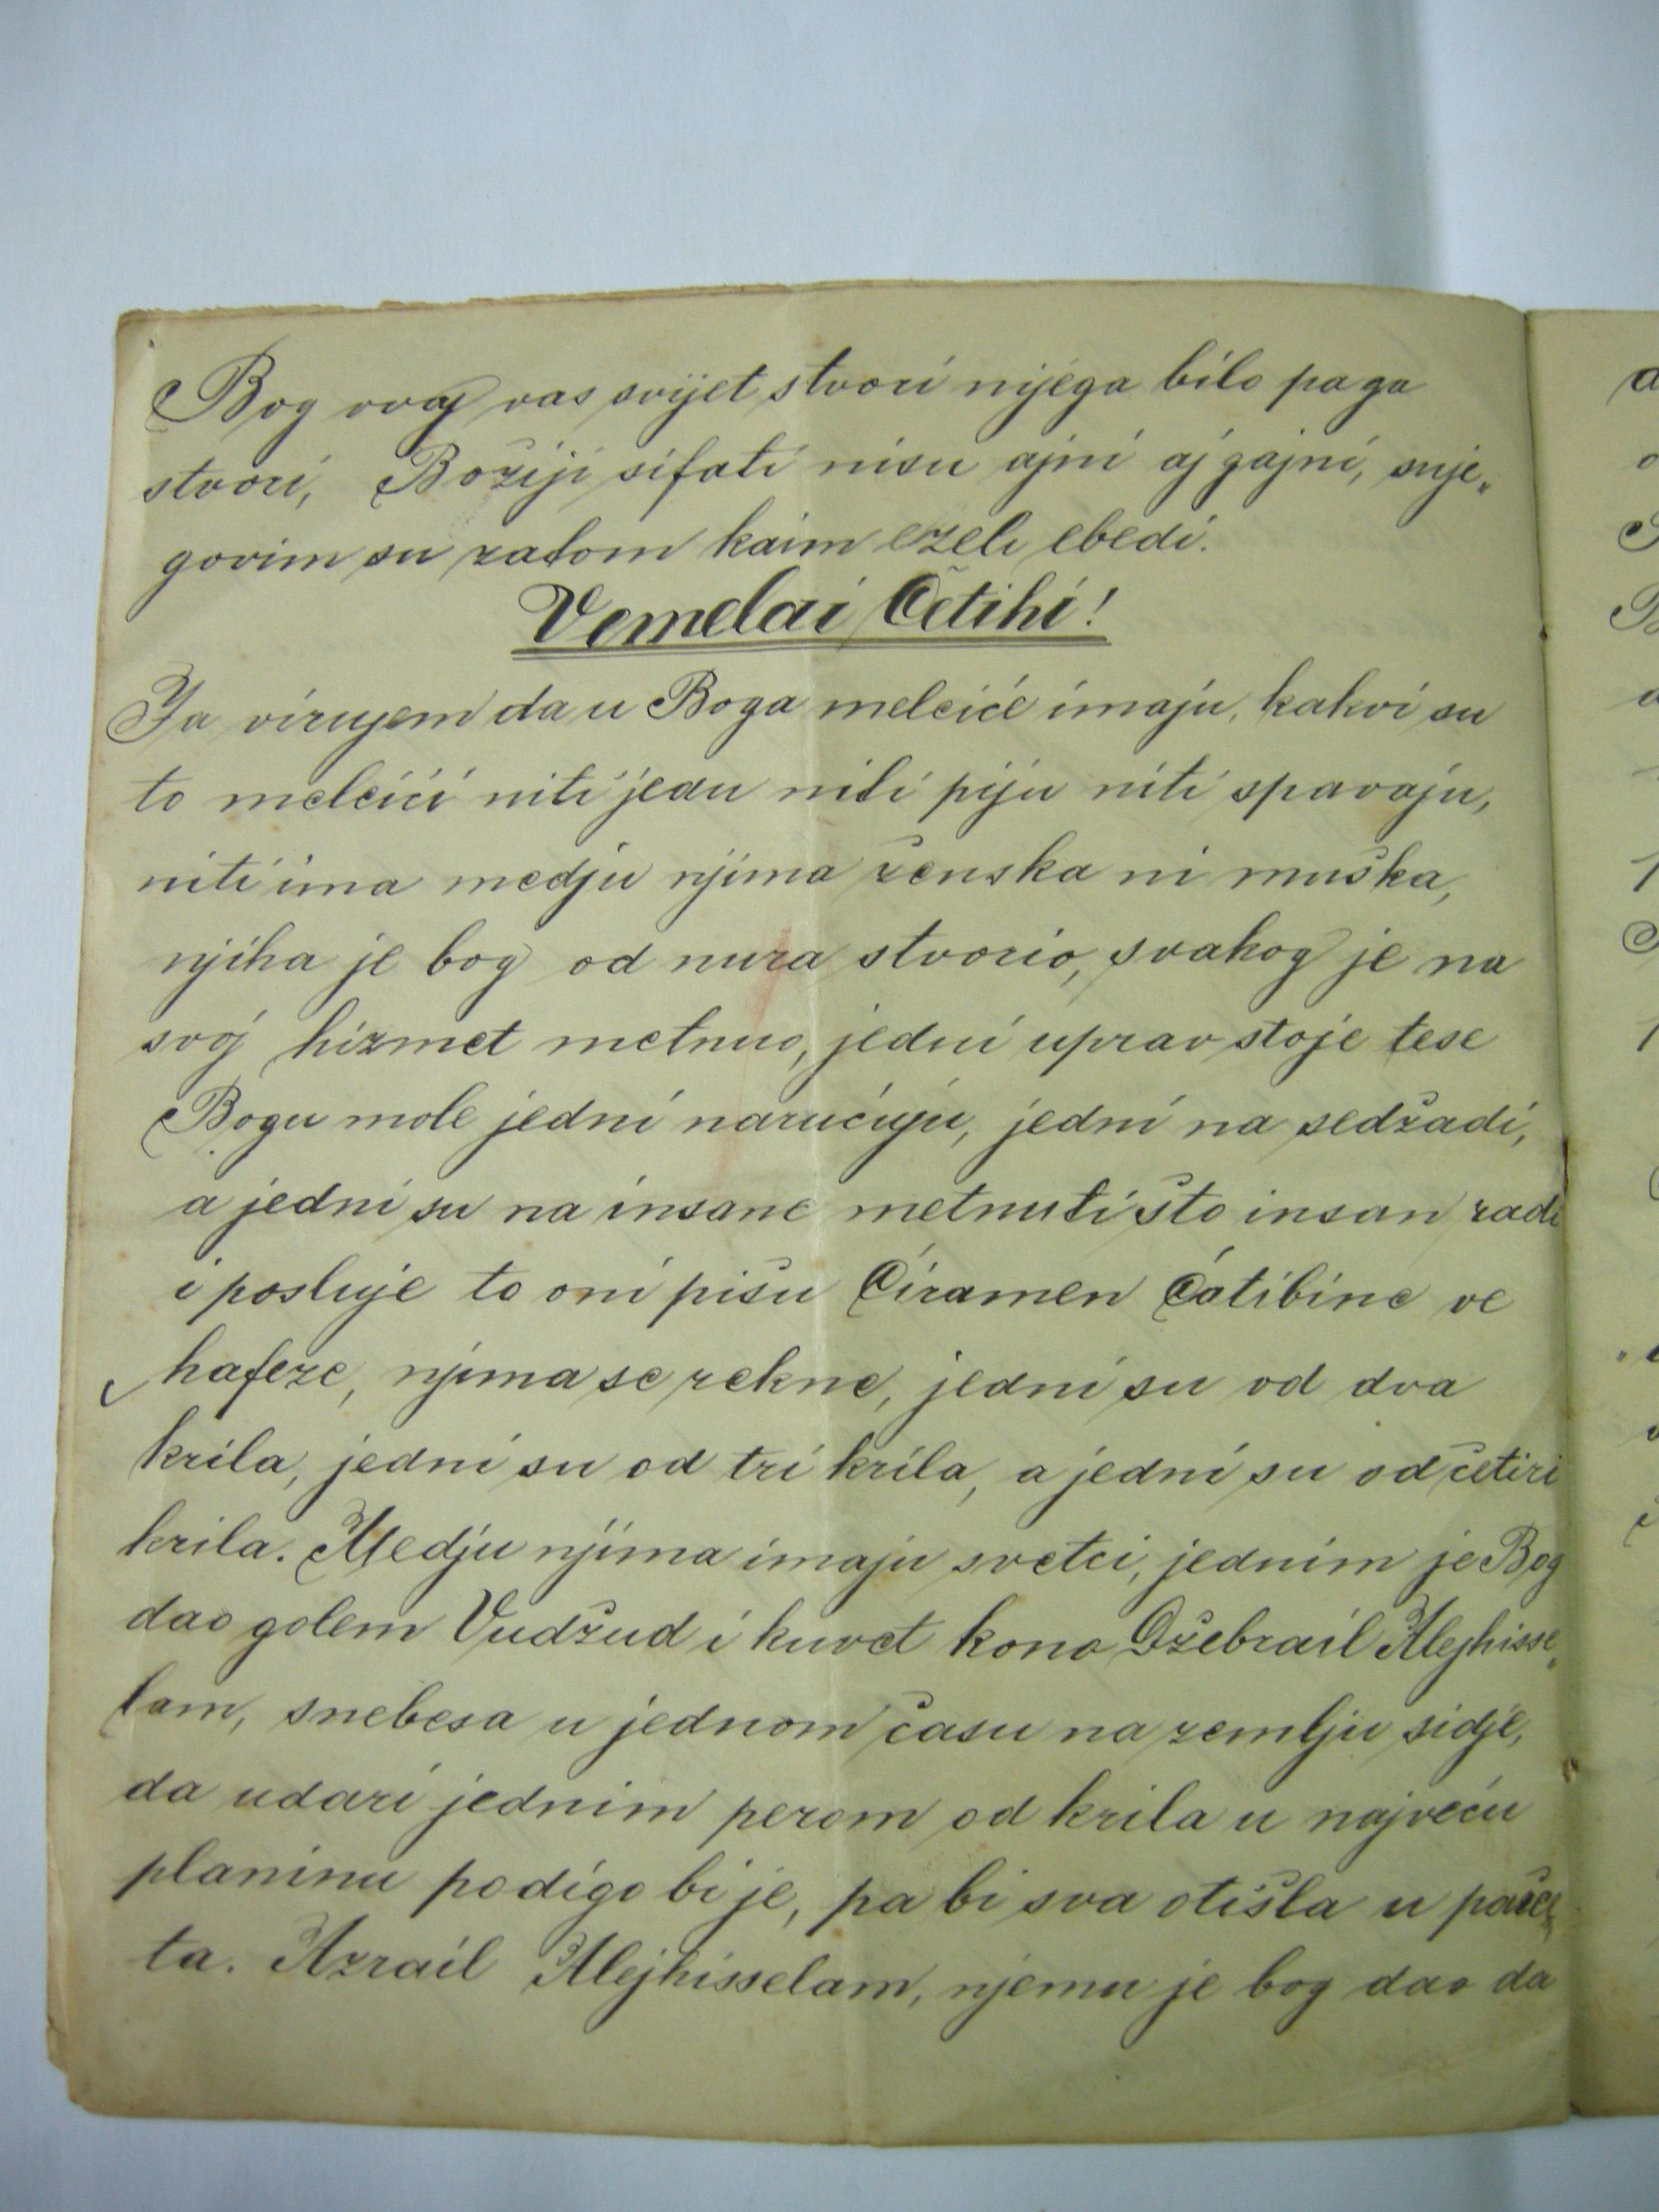 Bog ovaj vas svijet stvori nijega bilo pa ga
stvori, Božiji sifati nisu ajni aj gajni, snje„
govim su zatom kaim ezeli ebedi.
Vemelai Ćetihi!
Ja virujem da u Boga melcićé imaju, kakvi su
to melcići niti jedu niti piju niti spavaju,
niti ima medju njima ženska ni muška,
njiha je bog od nura stvorio, svakog je na
svoj hizmet metnuo, jedni uprav stoje tese
Bogu mole jedni naručuju, jedni na sedžadi,
a jedni su na insane metnuti što insan radi
i posluje to oni pišu Ćiramen Ćatibine ve
hafeze, njima se rekne, jedni su od dva
krila, jedni su od tri krila, a jedni su od četiri
krila. Medju njima imaju svetci, jednim je Bog
dao golem Vudžud i kuvet kono Džebrail Alejhisse„
lam, snebesa u jednom času na zemlju sidje,
da udari jednim perom od krila u najveću
planinu podigo bi je, pa bi sva otišla u parče„
ta. Azrail Alejhisselam, njemu je bog dao da